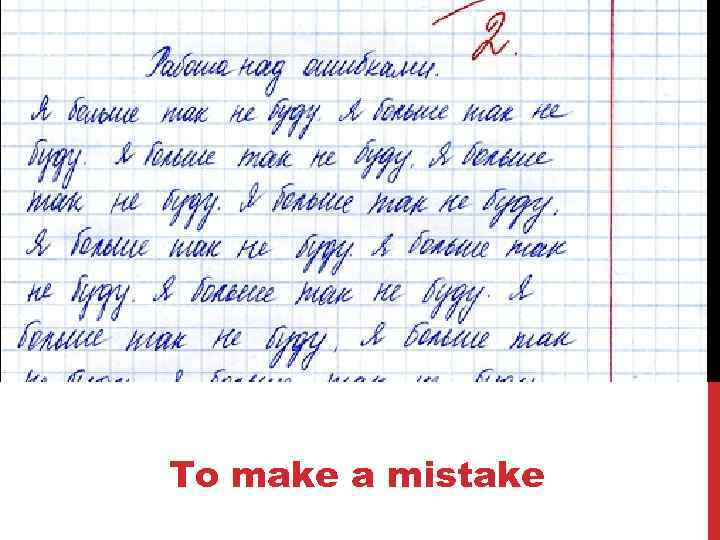 2.
Работа над ошибками.
Я больше так не буду. Я больше так не
буду. Я больше так не буду. Я больше
так не буду. Я больше так не буду.
Я больше так не буду. Я больше так
не буду. Я больше так не буду. Я
больше так не буду. Я больше так
не буду. Я больше так не буду
To make a mistake